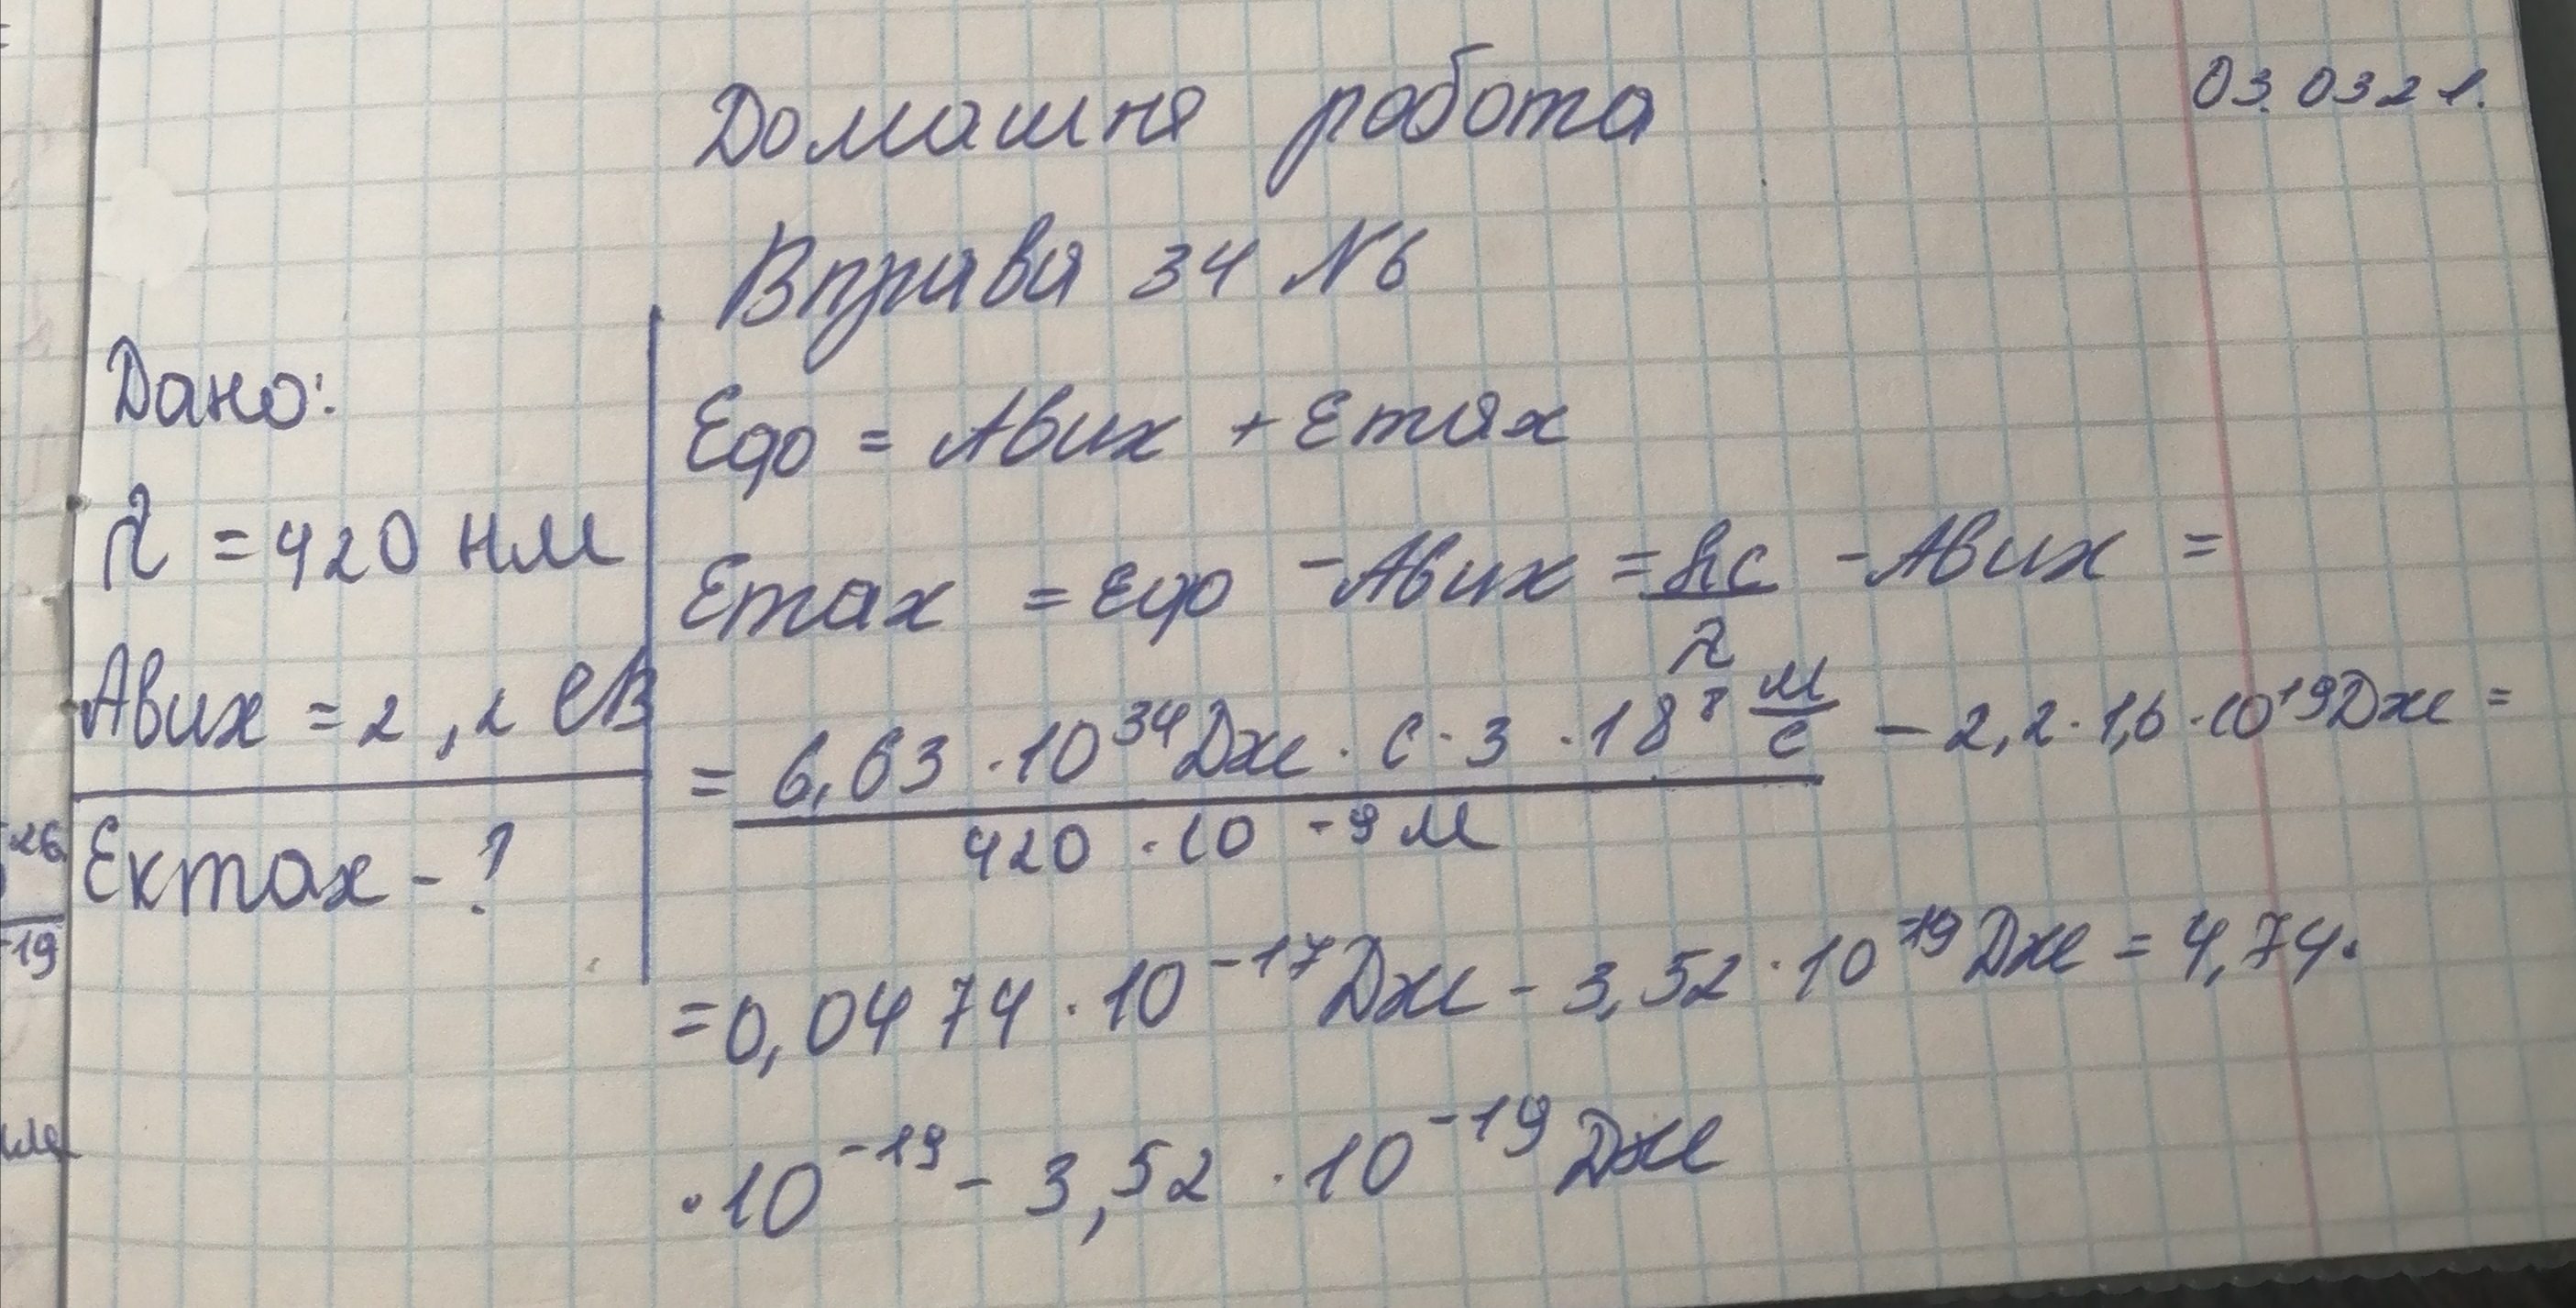 Домашня робота 03.0321.
Вправа 34 №6
Дано:
λ = 420 нм
Авих = 2,2 еВ
Екmax - ?
Еф = Авих + Еmax
Еmax = Еф - Авих = hc/λ - Авих =
= 6,63 · 10³⁴ Дж · с · 3 · 18⁸ м/с / 420 · 10 -9 м - 2,2 · 1,6 · 10¹⁹ Дж =
= 0,0474 · 10⁻¹⁷ Дж - 3,52 · 10⁻¹⁹ Дж = 4,74 ·
· 10⁻¹⁹ - 3,52 · 10⁻¹⁹ Дж
26
-19